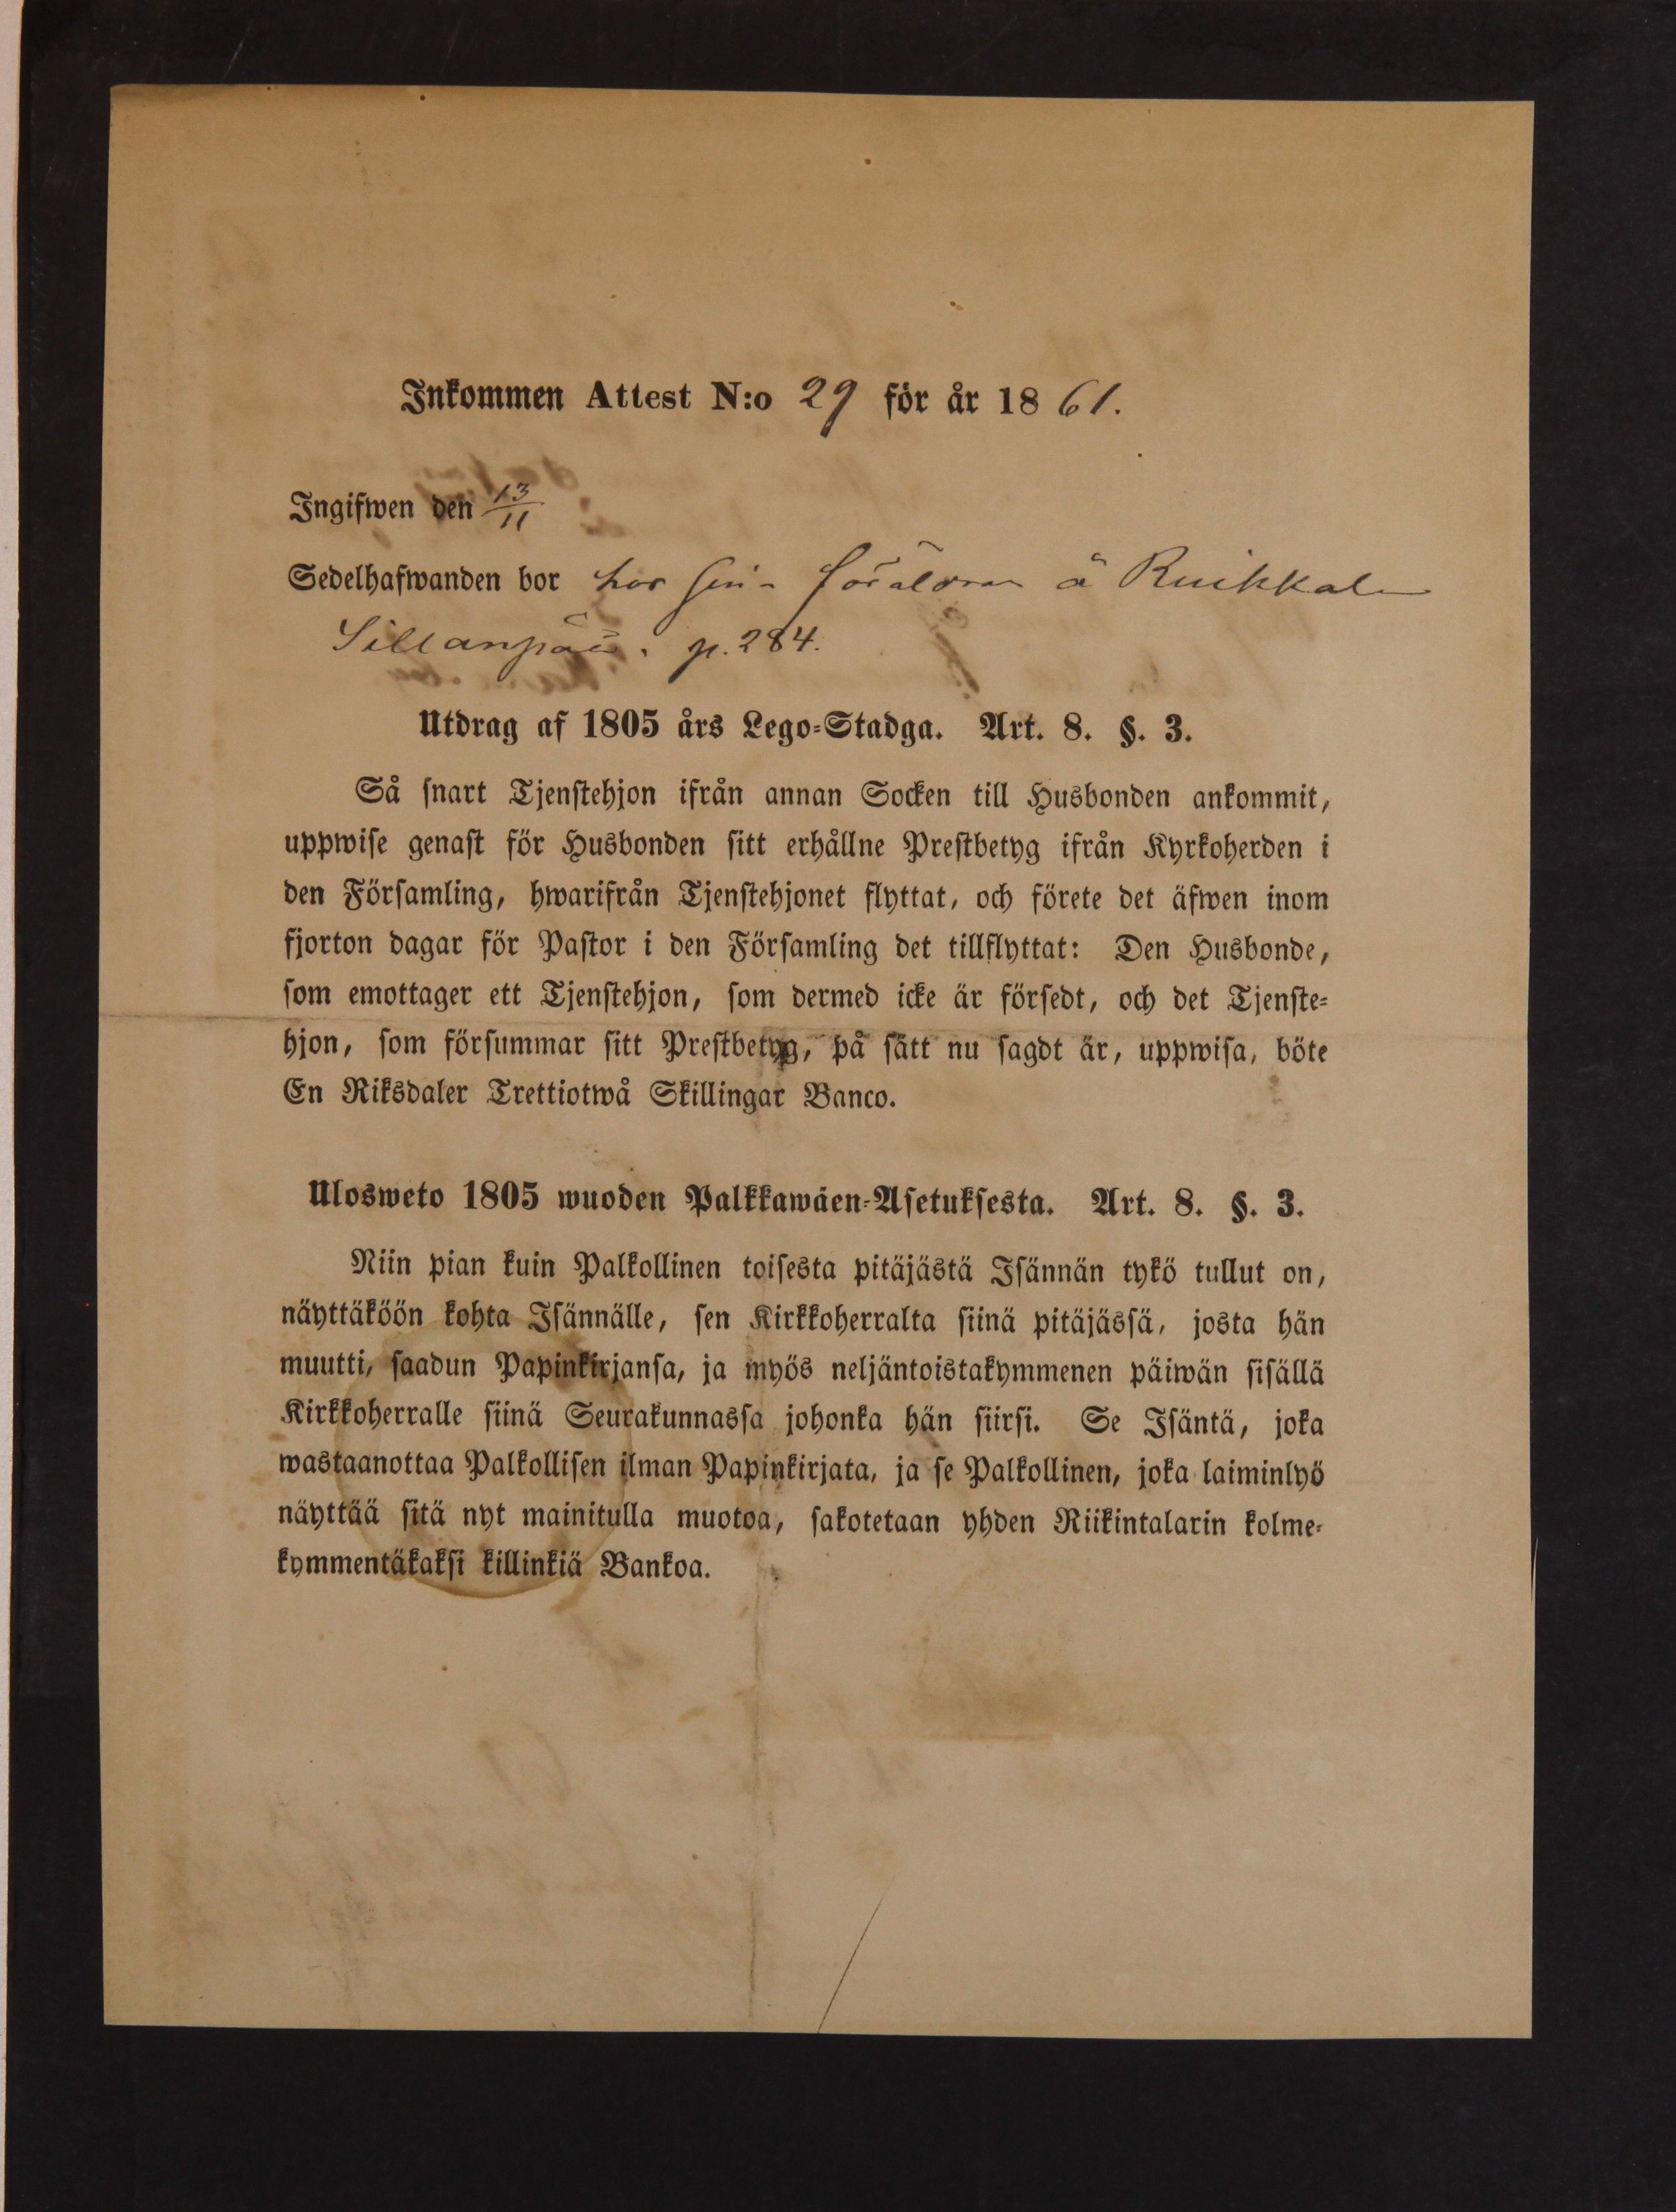 Inkommen Attest N:o 29 för år 1861.
Ingifwen den 13/11
Sedelhafwanden bor hos sina föräldrar å Ruikkala
Sillanpää. p. 284.
Utdrag af 1805 års Lego-Stadga. Art. 8. §. 3.
Så snart Tjenstehjon ifrån annan Socken till Husbonden ankommit,
uppwise genast för Husbonden sitt erhållne Prestbetyg ifrån Kyrkoherden i
den Församling, hwarifrån Tjenstehjonet flyttat, och förete det äfwen inom
fjorton dagar för Pastor i den Församling det tillflyttat: Den Husbonde,
som emottager ett Tjenstehjon, som dermed icke är försedt, och det Tjenste-
hjon, som försummar sitt Prestbetyg, på sätt nu sagdt är, uppwisa, böte
En Riksdaler Trettiotwå Skillingar Banco.
Ulosweto 1805 wuoden Palkkawäen-Asetuksesta. Art. 8. §. 3.
Niin pian kuin Palkollinen toisesta pitäjästä Isännän tykö tullut on,
näyttäköön kohta Isännälle, sen Kirkkoherralta siinä pitäjässä, josta hän
muutti, saadun Papinkirjansa, ja myös neljäntoistakymmenen päiwän sisällä
Kirkkoherralle siinä Seurakunnassa johonka hän siirsi. Se Isäntä, joka
wastaanottaa Palkollisen ilman Papinkirjata, ja se Palkollinen, joka laiminlyö
näyttää sitä nyt mainitulla muotoa, sakotetaan yhden Riikintalarin kolme-
kymmentäkaksi killinkiä Bankoa.